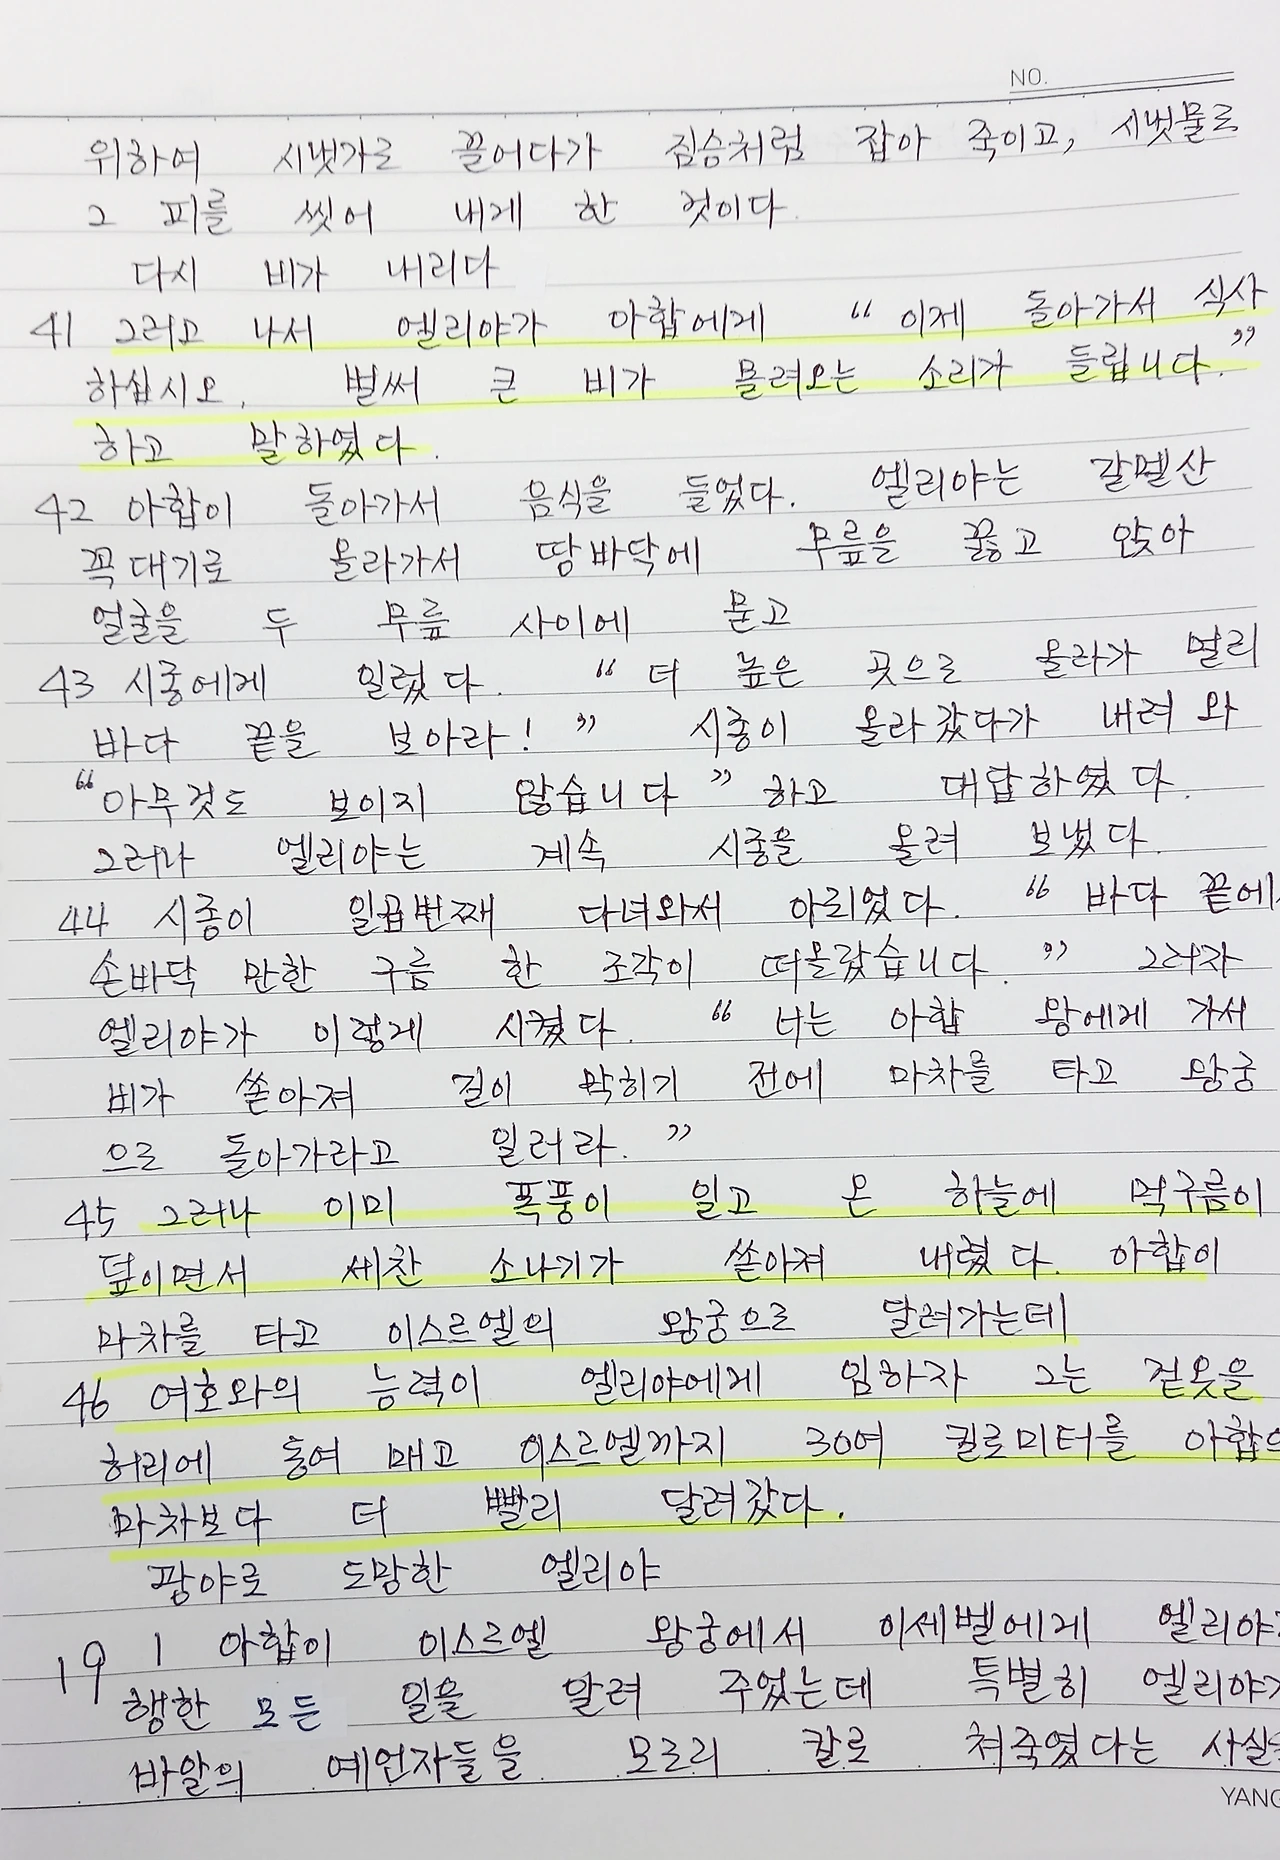 NO.
위하여 시냇가로 끌어다가 짐승처럼 잡아 죽이고, 시냇물로
그 피를 씻어 내게 한 것이다.
다시 비가 내리다
41 그러고 나서 엘리야가 아합에게 “이제 돌아가서 식사
하십시오. 벌써 큰 비가 몰려오는 소리가 들립니다.”
하고 말하였다.
42 아합이 돌아가서 음식을 들었다. 엘리야는 갈멜산
꼭대기로 올라가서 땅바닥에 무릎을 꿇고 앉아
얼굴을 두 무릎 사이에 묻고
43 시종에게 일렀다. “더 높은 곳으로 올라가 멀리
바다 끝을 보아라!” 시종이 올라갔다가 내려와
“아무것도 보이지 않습니다” 하고 대답하였다.
그러나 엘리야는 계속 시종을 올려 보냈다.
44 시종이 일곱번째 다녀와서 아뢰었다. “바다 끝에서
손바닥 만한 구름 한 조각이 떠올랐습니다.” 그러자
엘리야가 이렇게 시켰다. “너는 아합 왕에게 가서
비가 쏟아져 길이 막히기 전에 마차를 타고 왕궁
으로 돌아가라고 일러라.”
45 그러나 이미 폭풍이 일고 온 하늘에 먹구름이
덮이면서 세찬 소나기가 쏟아져 내렸다. 아합이
마차를 타고 이스르엘의 왕궁으로 달려가는데
46 여호와의 능력이 엘리야에게 임하자 그는 겉옷을
허리에 동여 매고 이스르엘까지 30여 킬로미터를 아합의
마차보다 더 빨리 달려갔다.
광야로 도망한 엘리야
19 1 아합이 이스르엘 왕궁에서 이세벨에게 엘리야가
행한 모든 일을 알려 주었는데 특별히 엘리야가
바알의 예언자들을 모조리 칼로 쳐죽였다는 사실을
YANG